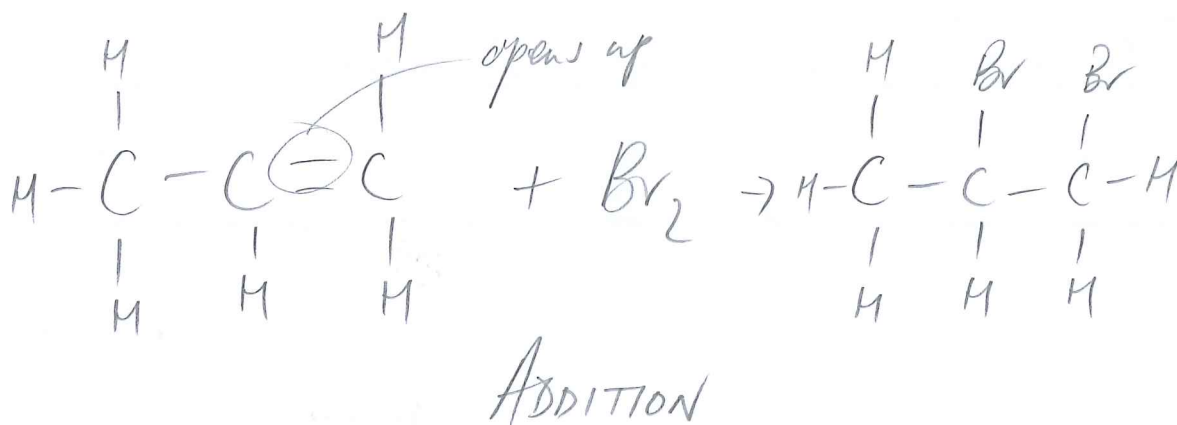 H H opens up H Br Br
H-C-C=C + Br₂ → H-C-C-C-H
H H H H H H
ADDITION